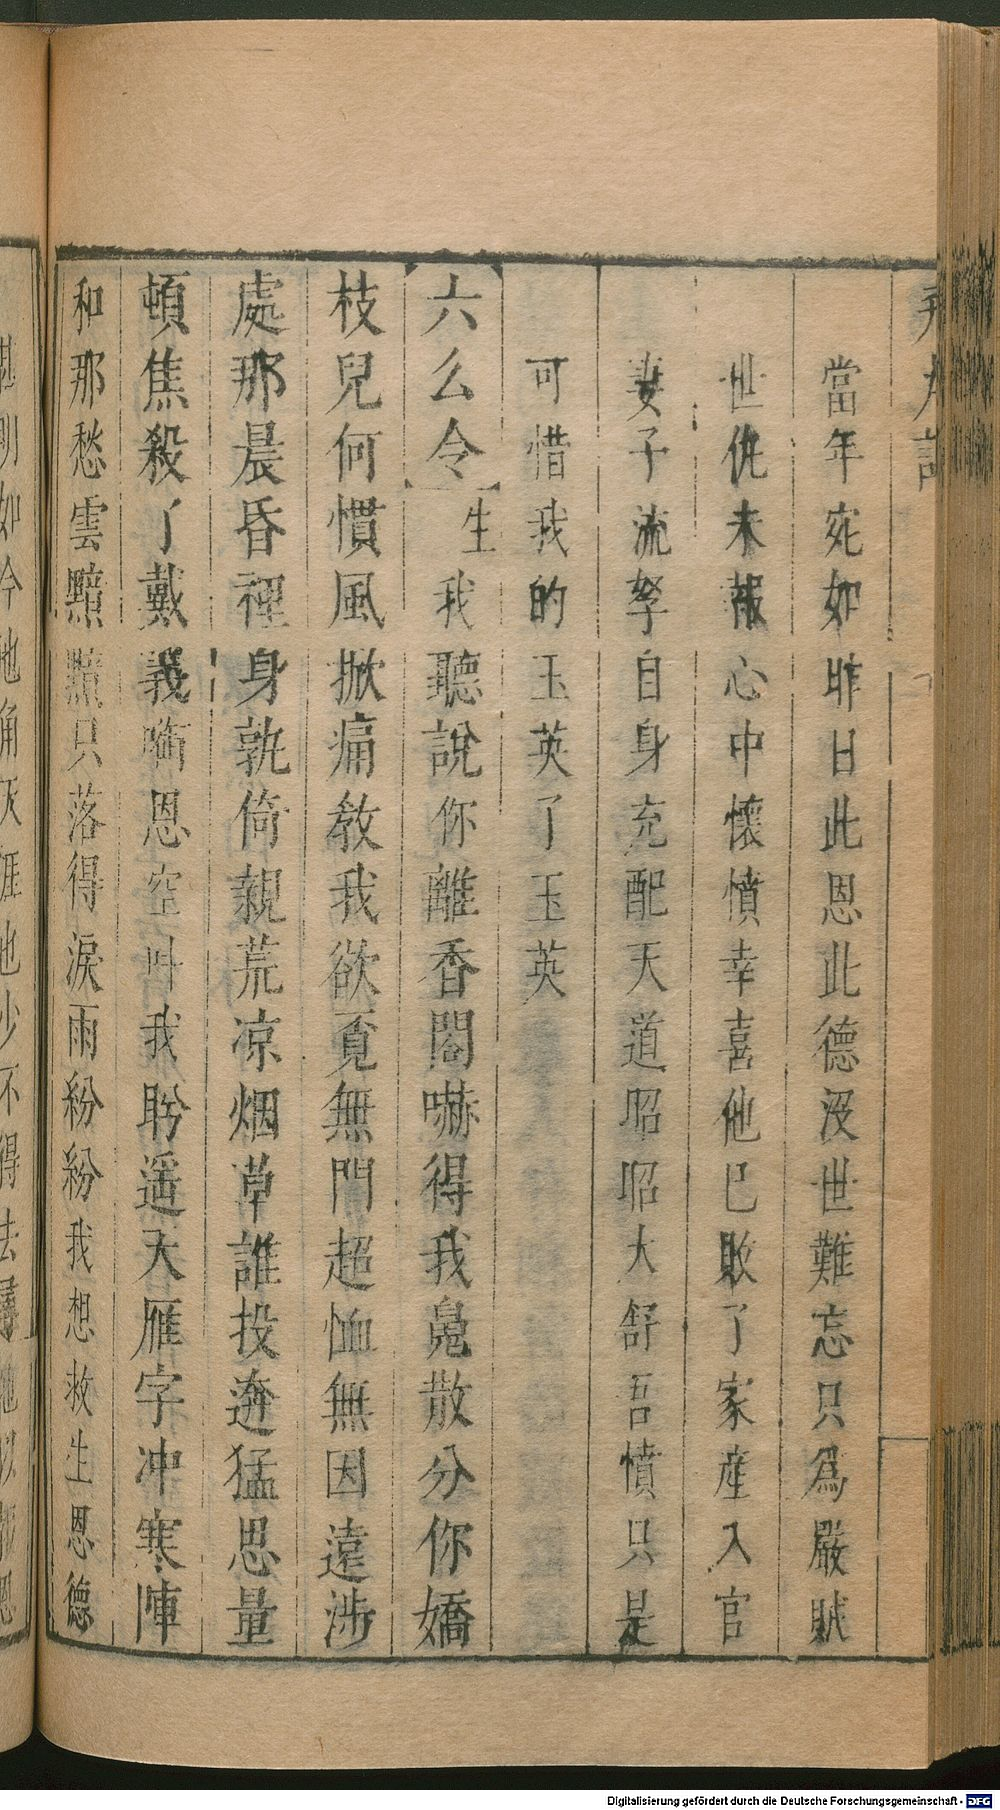 當年寃如昨日此恩此德沒世難忘只爲嚴賊
世仇未報心中懷憤幸喜他已敗了家産入官
妻子流孥自身充配天道昭昭大舒吾憤只是
可惜我的玉英了玉英
六么令 生 我聽說你離香閣嚇得我䰟散分你嬌
枝兒何慣風掀痛教我欲覔無門超恤無因遠涉
處那晨昏裡身孰倚親荒凉烟草誰投逩猛思量
頓焦殺了戴義啣恩空叫我盻遥天雁字冲寒陣
和那愁雲黯黯只落得淚雨紛紛我想救生恩德
Digitalisierung gefördert durch die Deutsche Forschungsgemeinschaft - DFG